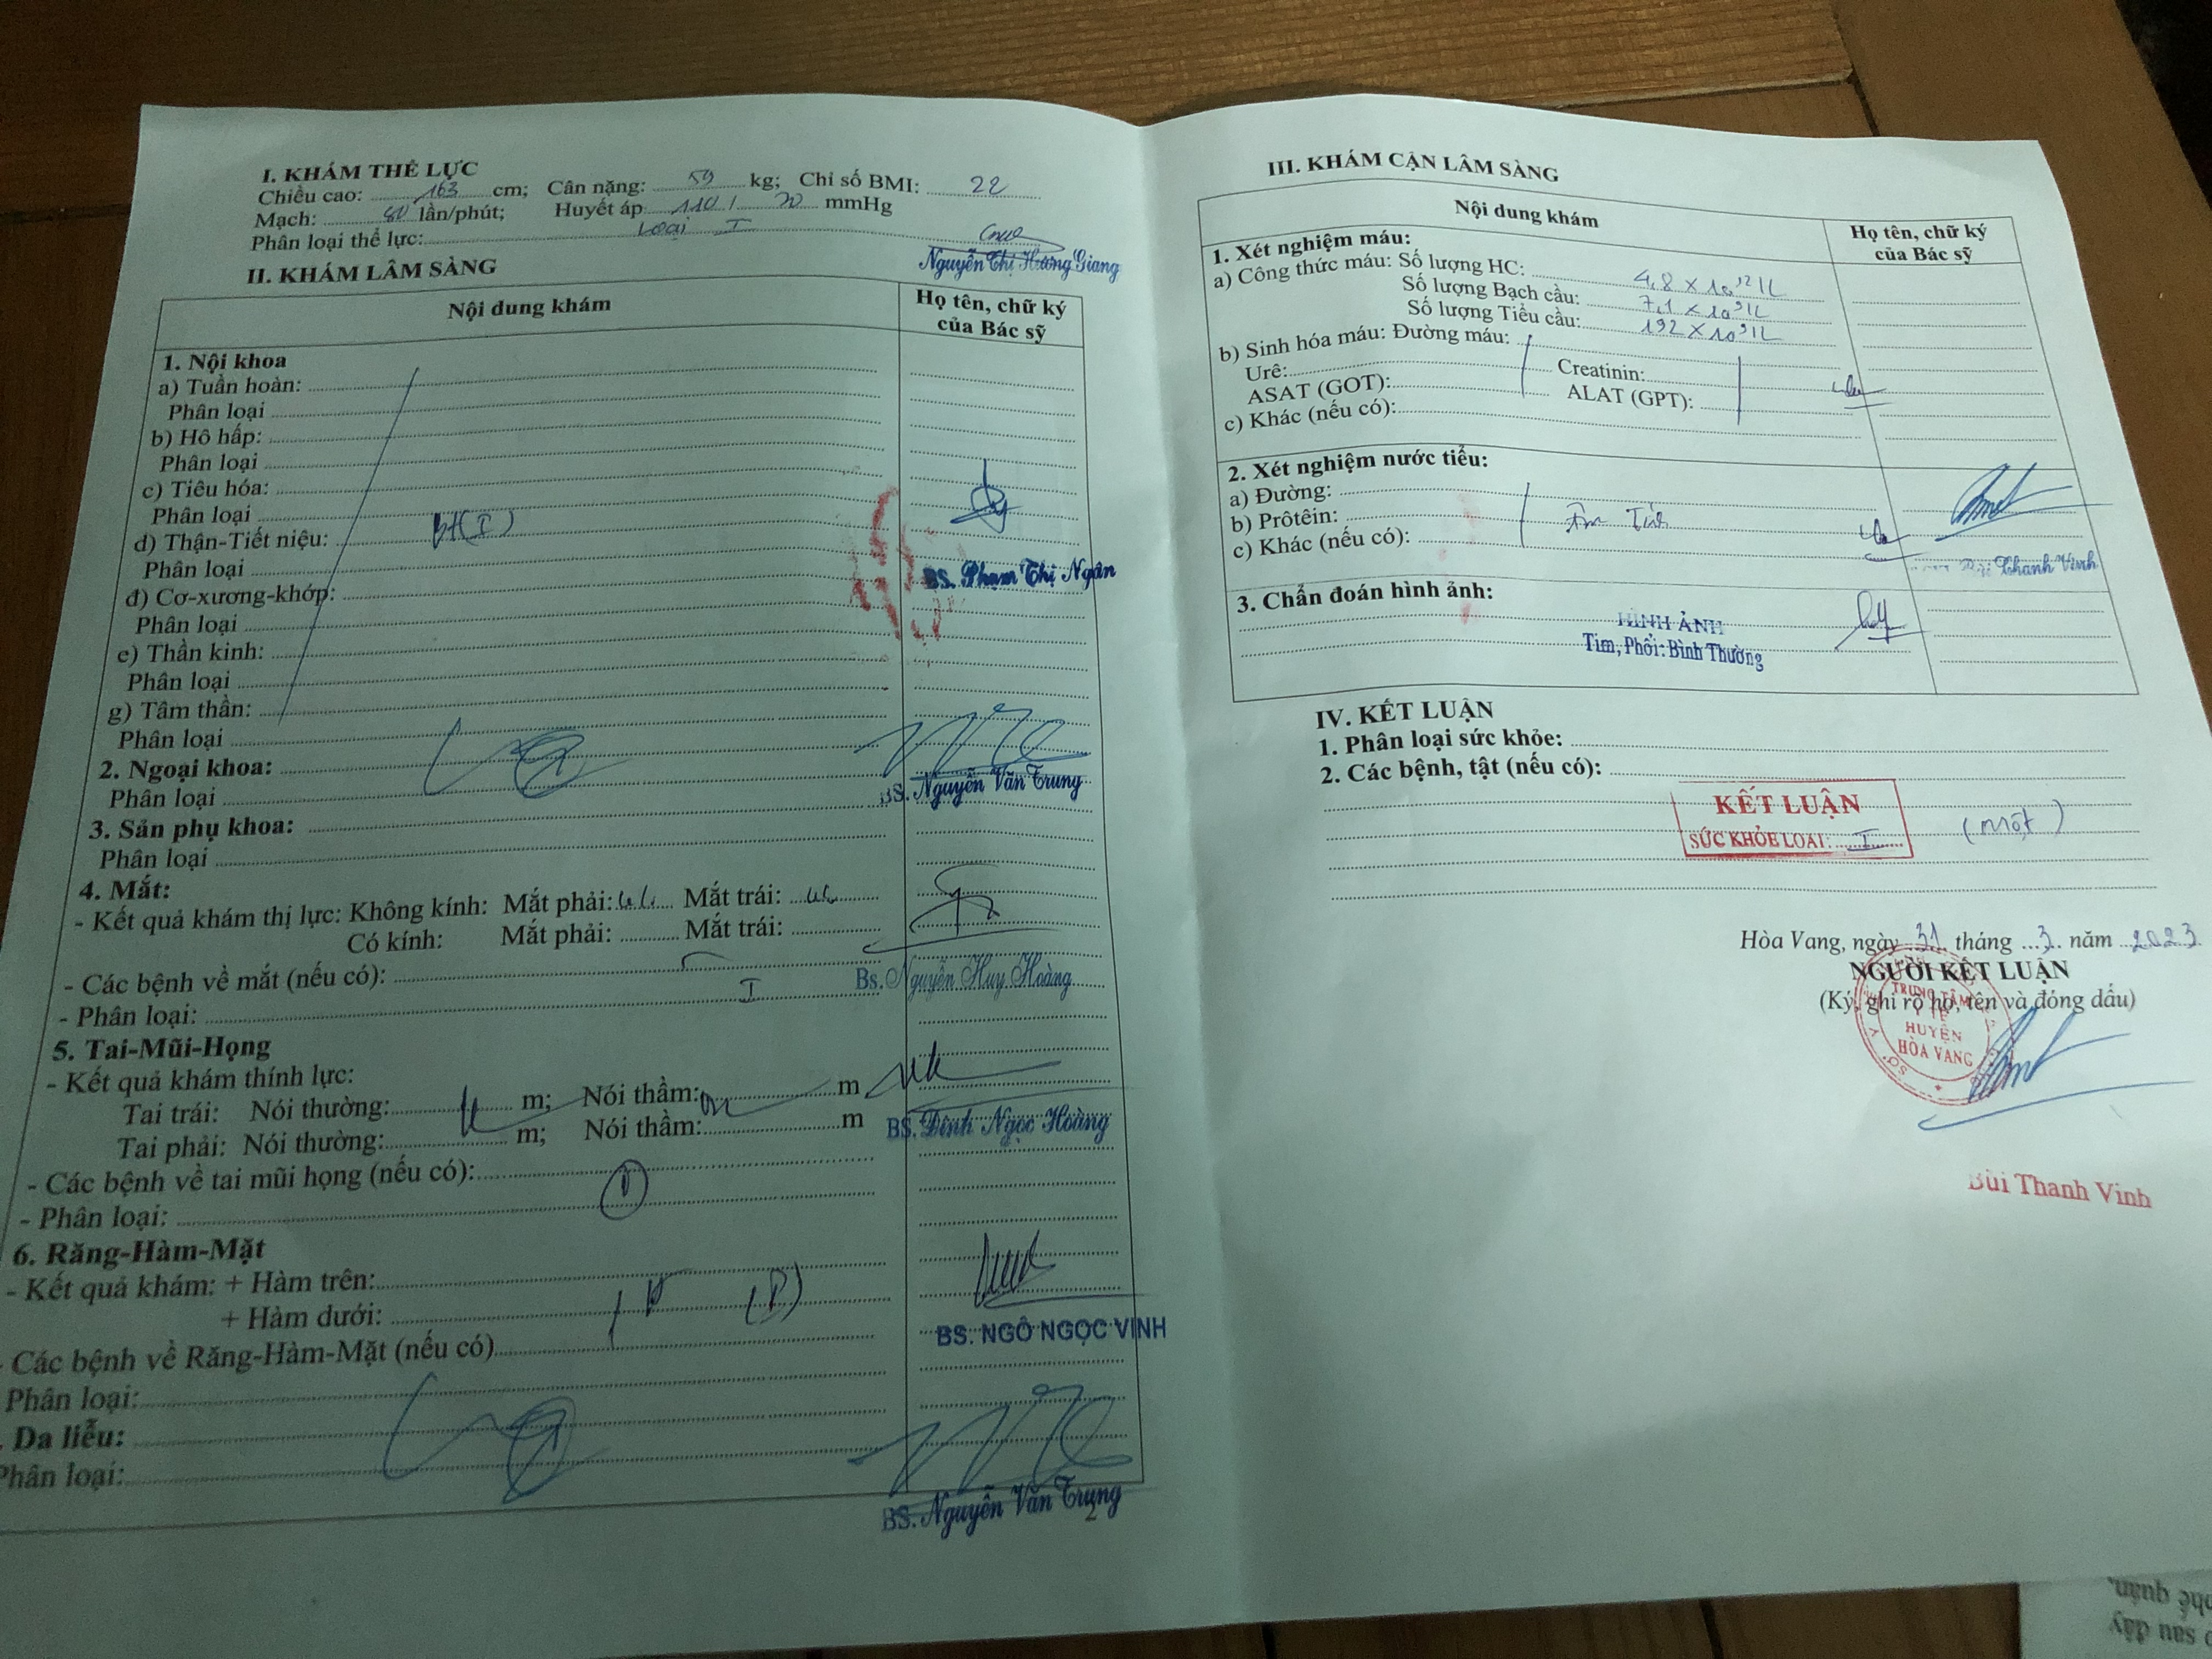 I. KHÁM THỂ LỰC
Chiều cao: 163 cm; Cân nặng: 59 kg; Chỉ số BMI: 22
Mạch: 80 lần/phút; Huyết áp 110 / 70 mmHg
Phân loại thể lực: Loại I
Nguyễn Thị Hương Giang
II. KHÁM LÂM SÀNG
Nội dung khám
Họ tên, chữ ký của Bác sỹ
1. Nội khoa
a) Tuần hoàn:
Phân loại
b) Hô hấp:
Phân loại
c) Tiêu hóa:
Phân loại
d) Thận-Tiết niệu: bt (I)
Phân loại
BS. Phạm Thị Ngân
đ) Cơ-xương-khớp:
Phân loại
e) Thần kinh:
Phân loại
g) Tâm thần:
Phân loại
2. Ngoại khoa:
Phân loại
BS. Nguyễn Văn Trung
3. Sản phụ khoa:
Phân loại
4. Mắt:
- Kết quả khám thị lực: Không kính: Mắt phải: Mắt trái:
Có kính: Mắt phải: Mắt trái:
- Các bệnh về mắt (nếu có):
Bs. Nguyễn Huy Hoàng
- Phân loại: I
5. Tai-Mũi-Họng
- Kết quả khám thính lực:
Tai trái: Nói thường: m; Nói thầm: m
Tai phải: Nói thường: m; Nói thầm: m
BS. Đinh Ngọc Hoàng
- Các bệnh về tai mũi họng (nếu có):
- Phân loại:
6. Răng-Hàm-Mặt
- Kết quả khám: + Hàm trên:
+ Hàm dưới: (I)
BS. NGÔ NGỌC VINH
- Các bệnh về Răng-Hàm-Mặt (nếu có)
Phân loại:
. Da liễu:
Phân loại:
BS. Nguyễn Văn Trung
2
III. KHÁM CẬN LÂM SÀNG
Nội dung khám
Họ tên, chữ ký của Bác sỹ
1. Xét nghiệm máu:
a) Công thức máu: Số lượng HC: 4,8 x 10^12/L
Số lượng Bạch cầu: 7,1 x 10^9/L
Số lượng Tiểu cầu: 192 x 10^9/L
b) Sinh hóa máu: Đường máu:
Urê: Creatinin:
ASAT (GOT): ALAT (GPT):
c) Khác (nếu có):
2. Xét nghiệm nước tiểu:
a) Đường:
b) Prôtêin: Âm Tính
c) Khác (nếu có):
Bùi Thanh Vinh
3. Chẩn đoán hình ảnh:
HÌNH ẢNH
Tim, Phổi: Bình Thường
IV. KẾT LUẬN
1. Phân loại sức khỏe:
2. Các bệnh, tật (nếu có):
KẾT LUẬN
SỨC KHỎE LOẠI: I (Một)
Hòa Vang, ngày 31 tháng 3 năm 2023
NGƯỜI KẾT LUẬN
(Ký, ghi rõ họ, tên và đóng dấu)
TRUNG TÂM
Y TẾ
HUYỆN
HÒA VANG
Bùi Thanh Vinh